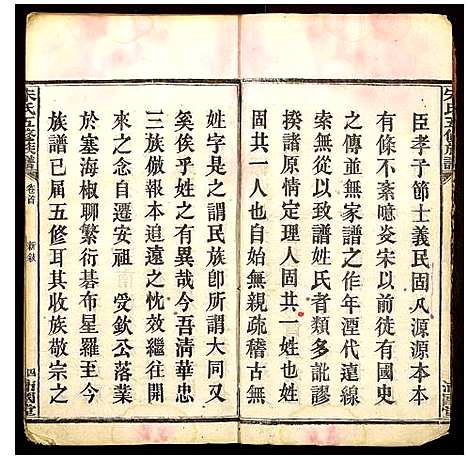 臣孝子節士義民固凡源源本本
有條不紊噫炎宋以前徒有國史
之傳並無家譜之作年湮代遠線
索無從以致譜姓氏者類多訛謬
揆譜原情定理人固共一姓也姓
固共一人也自始無親疏稽古無
姓字是之謂民族卽所謂大同又
奚俟乎姓之有異哉今吾清華忠
三族倣報本追遠之忱效繼往開
來之念自遷安祖 受欽公落業
於塞海椒聊繁衍碁布星羅至今
族譜已届五修耳其收族敬宗之
朱氏五修族譜
卷首
新敍
四